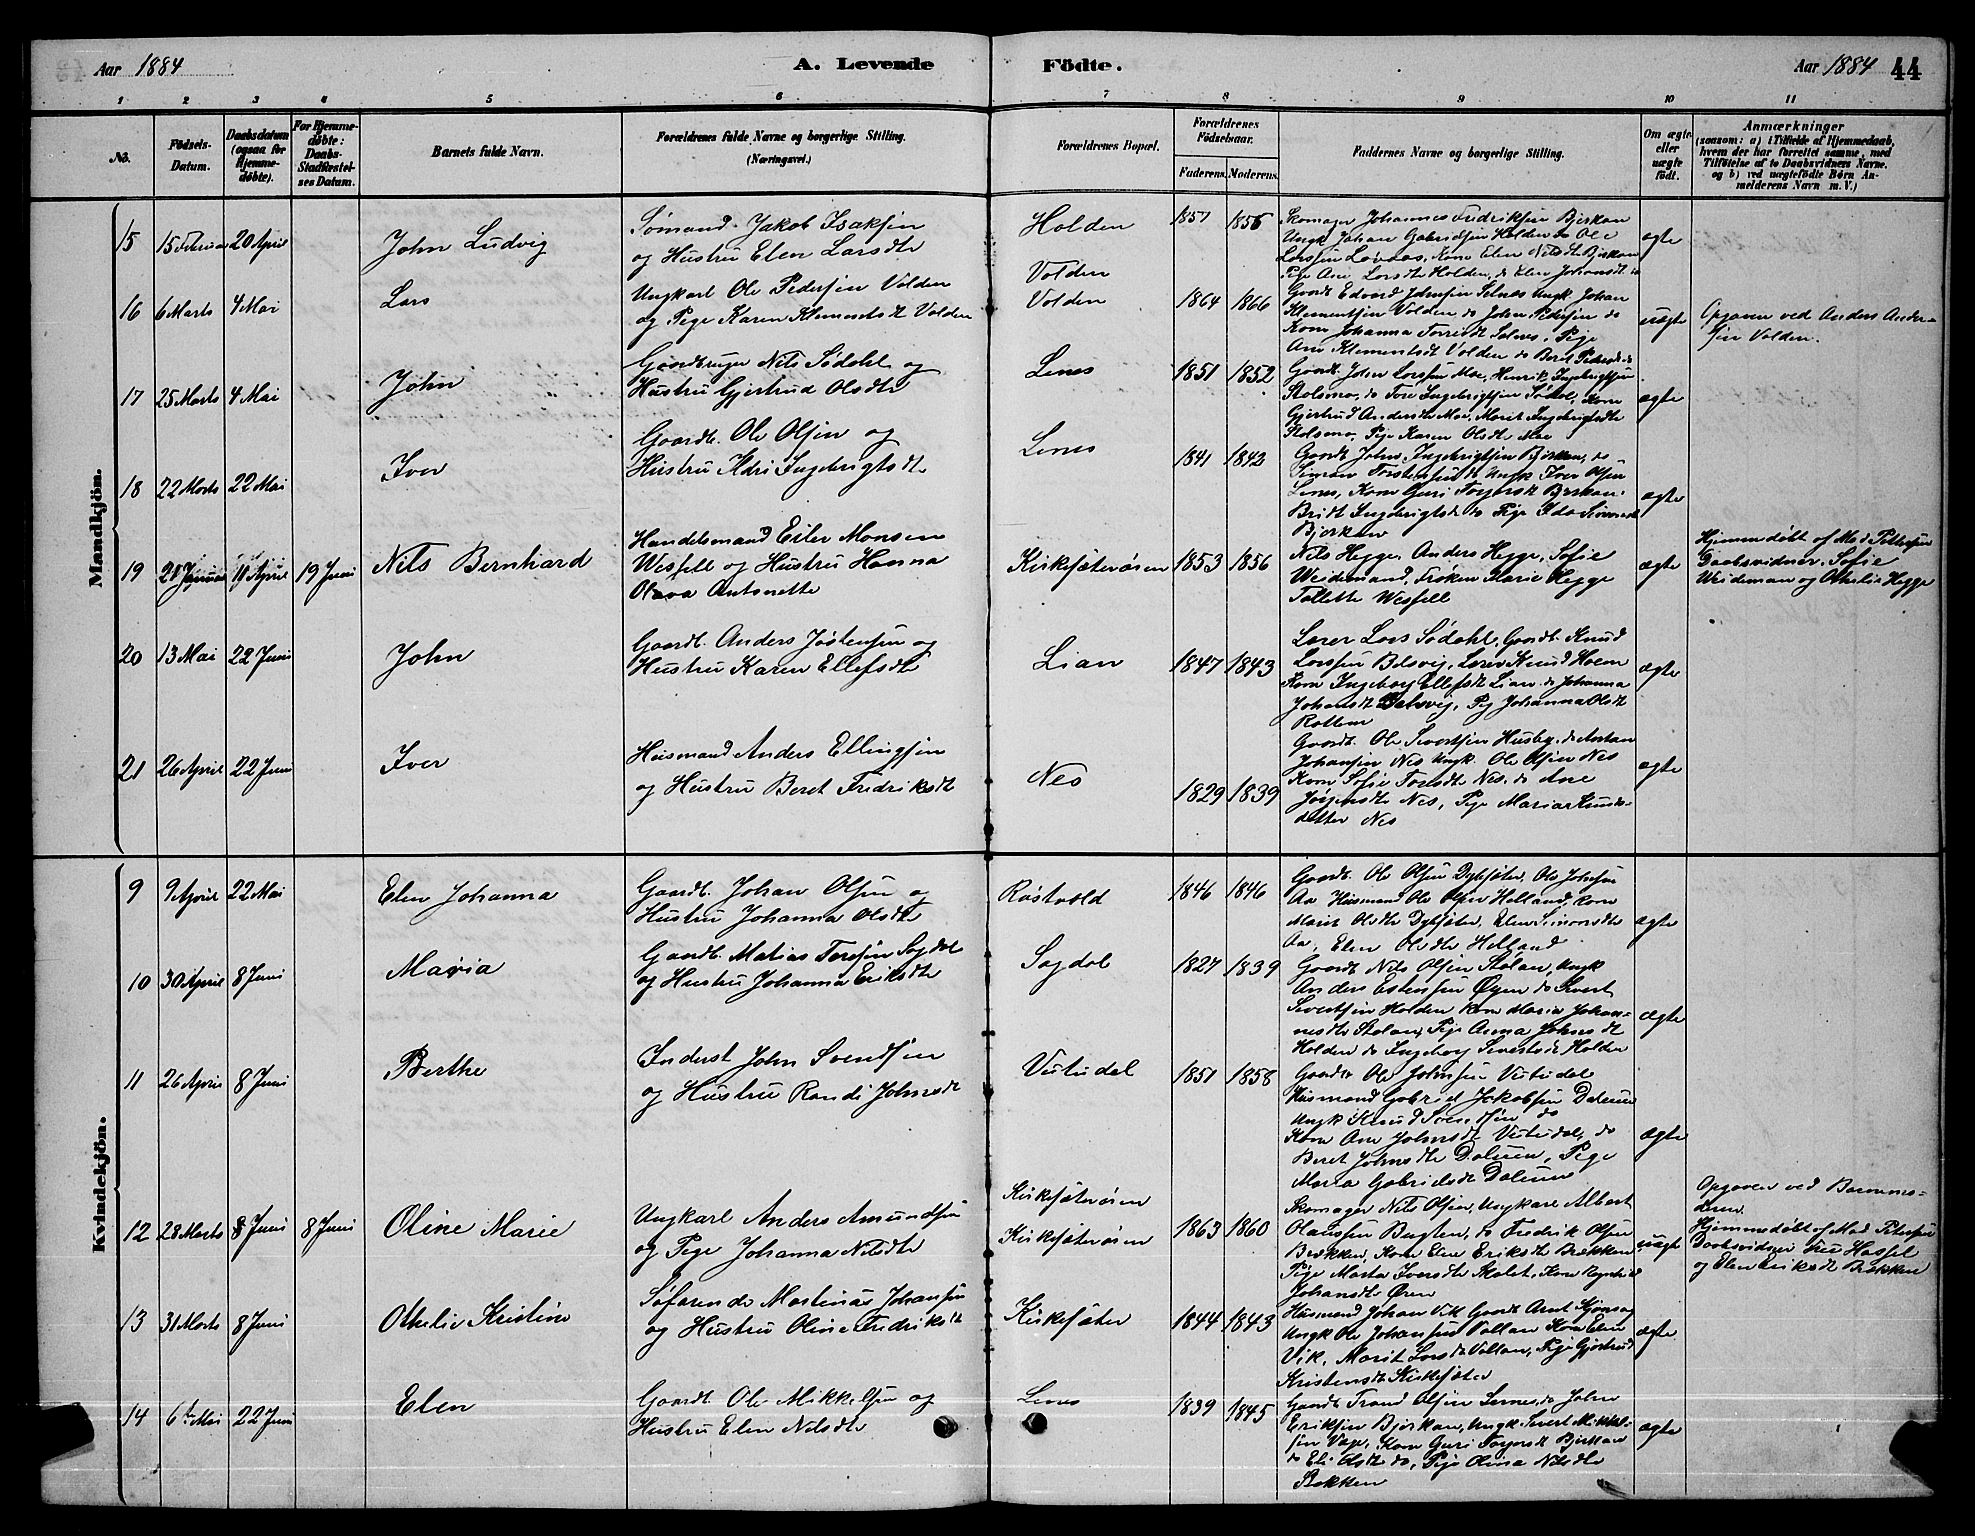 Aar 1884
A. Levende
Födte.
Aar 1884
44
1 2 3 4 5 6 7 8 9 10 11
No.
Fødsels-Datum.
Daabsdatum (ogsaa for Hjemme-døbte).
For Hjemme-døbte: Daabs-Stadfæstel-ses Datum.
Barnets fulde Navn.
Forældrenes fulde Navne og borgerlige Stilling.
(Næringsvei.)
Forældrenes Bopæl.
Forældrenes Fødselsaar.
Faderens. Moderens.
Faddernes Navne og borgerlige Stilling.
Om ægte eller uægte født.
Anmærkninger
(saasom: a) i Tilfælde af Hjemmedaab, hvem der har forrettet samme, med Tilføielse af to Daabsvidners Navne. og b) ved uægtefødte Børn An-melderens Navn m. V.)
Mandkjön.
15 15 Februar 20 April John Ludvig
Sømand Jakob Isaksen
og Hustru Elen Larsdtr
Holden 1857 1856
Skomager Johannes Fredriksen Bjerkan
Ungk Johan Gabrielsen Holden do Ole
Larssen Lernes, Kone Elen Nilsdt Bjerkan
Pige Ane Larsdtr Holden, do Elen Johansdt do
ægte
16 6 Marts 4 Mai Lars
Ungkarl Ole Pedersen Volden
og Pige Karen Klementsdt Volden
Volden
Volden 1864 1866
Gaardt Edvard Johnsen Selnes Ungk Johan
Klementsen Volden do John Pedersen do
Kone Johanna Toresdt Selnes, Pige
Ane Klementsdt Volden do Beret Pedersdt do
uægte
Opgaven ved Anders Ander-
sen Volden.
17 25 Marts 4 Mai John
Gaardbruger Nils Södahl og
Hustru Gjertrud Olsdtr
Lenes 1851 1852
Gaardt. John Larssen Moe, Henrik Ingebrigtsen
Stolsmo, do Tore Ingebrigtsen Södal, Kone
Gjertrud Andersdtr Moe, Marit Ingebrigtsdtr
Stolsmo, Pige Karen Olsdtr Moe
ægte
18 22 Marts 22 Mai Iver
Gaardb. Ole Olsen og
Hustru Ildri Ingebrigtsdt
Lenes 1841 1842
Gaardt John Ingebrigtsen Bjerkan, do
Simon Torstensen do Ungk Iver Olsen
Lenes, Kone Guri Torgersdt Bjerkan
Bridt Ingebrigtsdt do Pige Ida Simonsdt
Bjerkan
ægte
19 21 Januar 11 April 19 Juni Nils Bernhard
Handelsmand Eiler Monsen
Wesfell og Hustru Hanna
Olava Antonette
Kirksæterøren 1853 1856
Nils Hegge, Anders Hegge, Sofie
Weidemand, Frøken Marie Hegge
Tollette Wesfell
ægte
Hjemmedøbt af Mad Pettersen
Daabsvidner Sofie
Weideman og Othelie Hegge
20 13 Mai 22 Juni John
Gaardb. Anders Jöstensen og
Hustru Karen Ellefsdt
Lian 1847 1843
Lærer Lars Södahl, Gaardt. Knud
Larssen Belsvig, Lærer Knud Hoem
Kone Ingeborg Ellefsdt Lian do Johanna
Johansdt Belsvig, Pig Johanna Olsdt
Rottem
ægte
21 26 April 22 Juni Iver
Husmand Anders Ellingsen
og Hustru Beret Fredriksdt
Nes 1829 1839
Gaardt. Ole Sivertsen Husby, do Anton
Johansen Nes Ungk. Ole Olsen Nes
Kone Sofie Toresdtr Nes, do Ane
Jørgensdtr Nes, Pige Maria Knuds-
datter Nes
ægte
Kvindekjön.
9 9 April 22 Mai Elen Johanna
Gaardb. Johan Olsen og
Hustru Johanna Olsdtr
Röstvold 1846 1846
Gaardt. Ole Olsen Dybsæter, Ole Johnsen
Aa Husmand Ole Olsen Helland, Kone
Marit Olsdtr Dybsæter, Elen Simonsdtr
Aa, Elen Olsdtr Helland
ægte
10 30 April 8 Juni Maria
Gaardb. Matias Toresen Sagdal
og Hustru Johanna Eriksdtr
Sagdal 1827 1839
Gaardt Nils Olsen Stolan, Ungk
Anders Estensen Øyen do Sivert
Sivertsen Holden Kone Maria Johan-
nesdtr Stolan, Pige Anna Johnsdt
Holden do Ingeborg Sivertsdt Holden
ægte
11 26 April 8 Juni Berthe
Inderst John Svendsen
og Hustru Randi Johnsdt
Vutudal 1851 1858
Gaardb Ole Johnsen Vutudal
Husmand Gabriel Jakobsen Dalum
Ungk Knud Svendsen do
Kone Ane Johnsdt Vutudal, do
Beret Johnsdtr Dalum, Pige
Maria Gabrielsdt Dalum
ægte
12 28 Marts 8 Juni 8 Juni Oline Marie
Ungkarl Anders Amundsen
og Pige Johanna Nilsdtr
Kirksæterøren
Kirksæterøren 1863 1860
Skomager Nils Olsen, Ungkarl Albert
Olaussen Bugten, do Fredrik Olsen
Brækken, Kone Elen Eriksdt Brækken
Pige Marta Iversdtr Skolet, Kone Ragnhild
Johansdt Øren
uægte
Opgaven ved Barnemo-
deren
Hjemmedøbt af Mad Petersen
Daabsvidner Fru Hassel
og Elen Eriksdt Brækken
13 31 Marts 8 Juni Othelie Kristine
Søfarende Martinus Johansen
og Hustru Oline Fredriksdt
Kirksæter 1844 1843
Husmand Johan Vik Gaardt Arnt
Ungk Ole Johansen Vollan Kone Elen
Vik, Marit Larsdt Vollan, Pige Gjertrud
Kristensdt Kirksæter
ægte
14 6te Mai 22 Juni Elen
Gaardt. Ole Mikkelsen og
Hustru Elen Nilsdtr
Lenes 1839 1845
Gaardt Trond Olsen Lernes, do John
Eriksen Bjerkan, Ungk. Sivert Mikkel-
sen Vage, Kone Guri Torgersdt Bjerkan
do Eli Olsdt do, Pige Olina Nilsdtr
Bekken
ægte